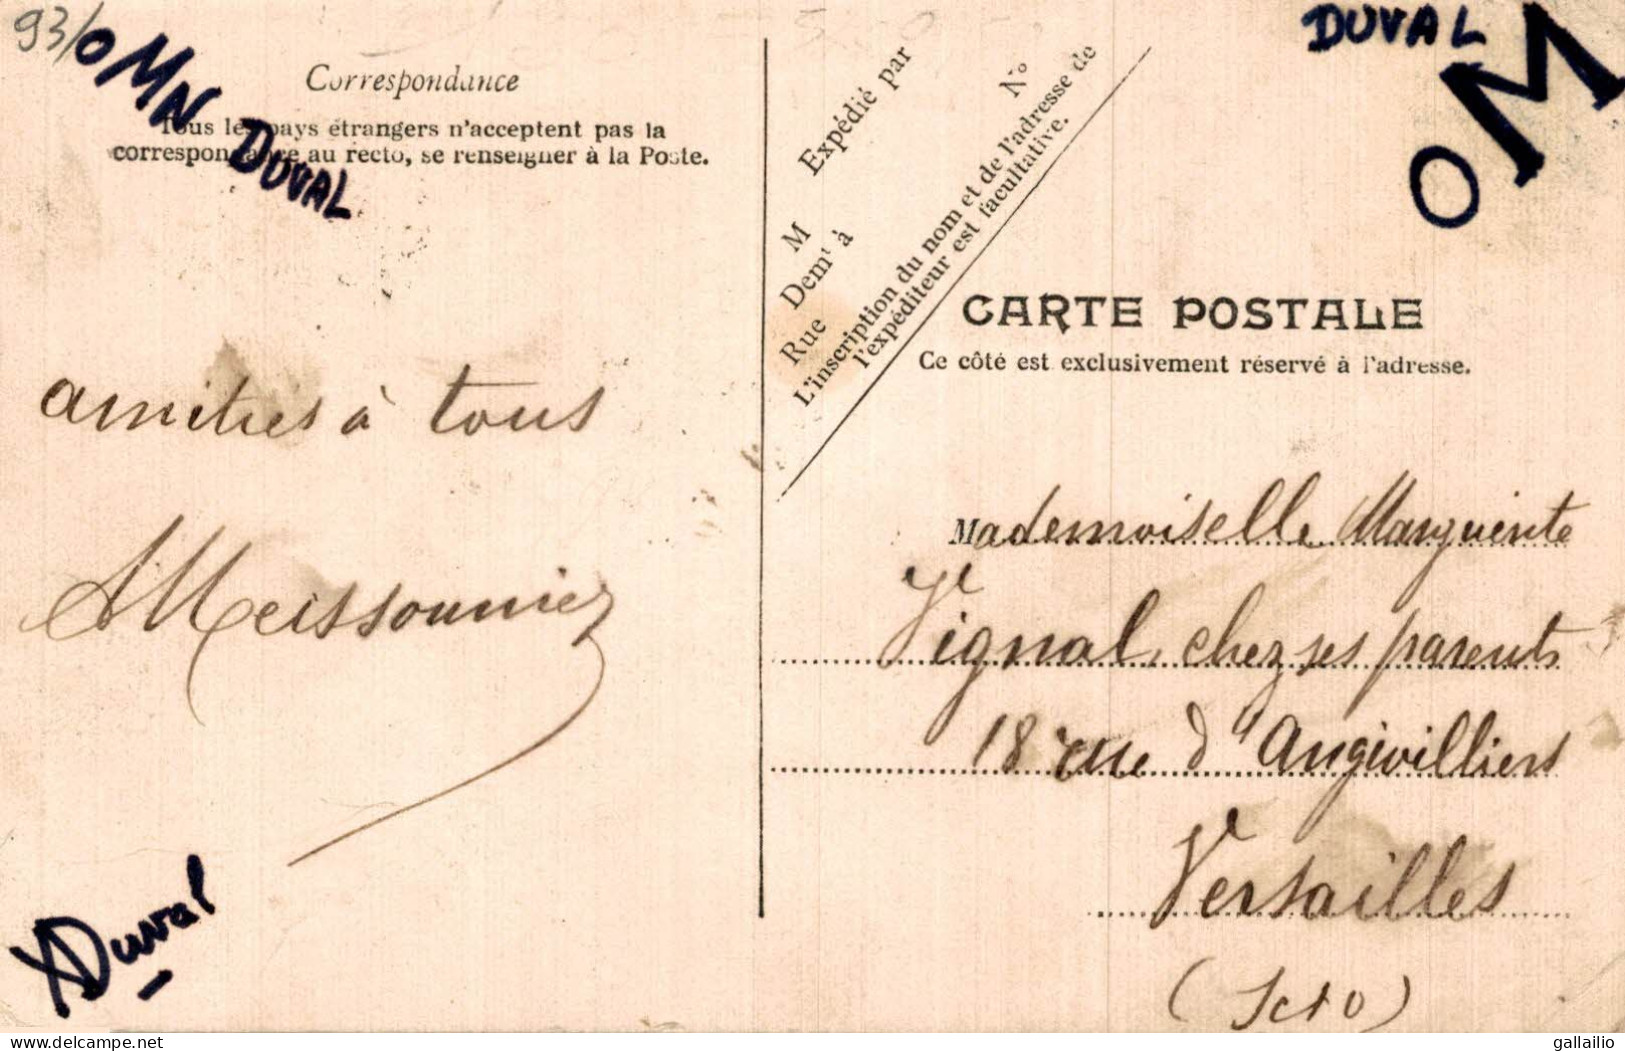 93/0 MN
DUVAL
Correspondance
Tous les pays étrangers n'acceptent pas la
correspondance au recto, se renseigner à la Poste.
amitiés à tous
AMeissonnier
Duval
M
Expédié par
Demt à
Rue
N°
L'inscription du nom et de l'adresse de
l'expéditeur est facultative.
DUVAL
OM
CARTE POSTALE
Ce côté est exclusivement réservé à l'adresse.
Mademoiselle Marguerite
Vignal, chez ses parents
18 rue d'Angivilliers
Versailles
(Set O)
delcampe.net
gallailio